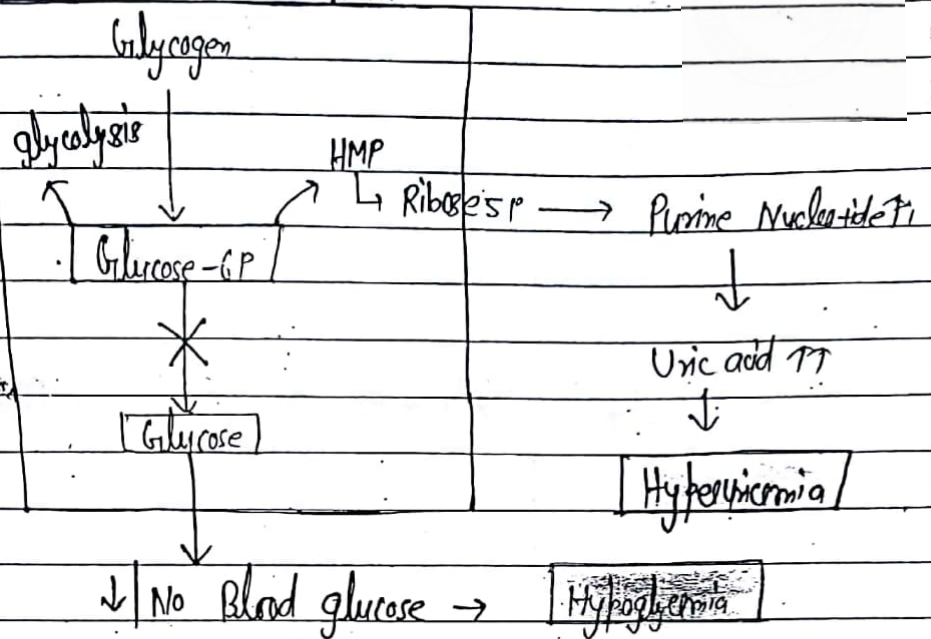 Glycogen
glycolysis
HMP
↳ Ribose5P → Purine Nucleotide ↑↑
Glucose-6P
Uric acid ↑↑
Glycose
Hyperuricemia
↓ No Blood glucose → Hypoglyemia